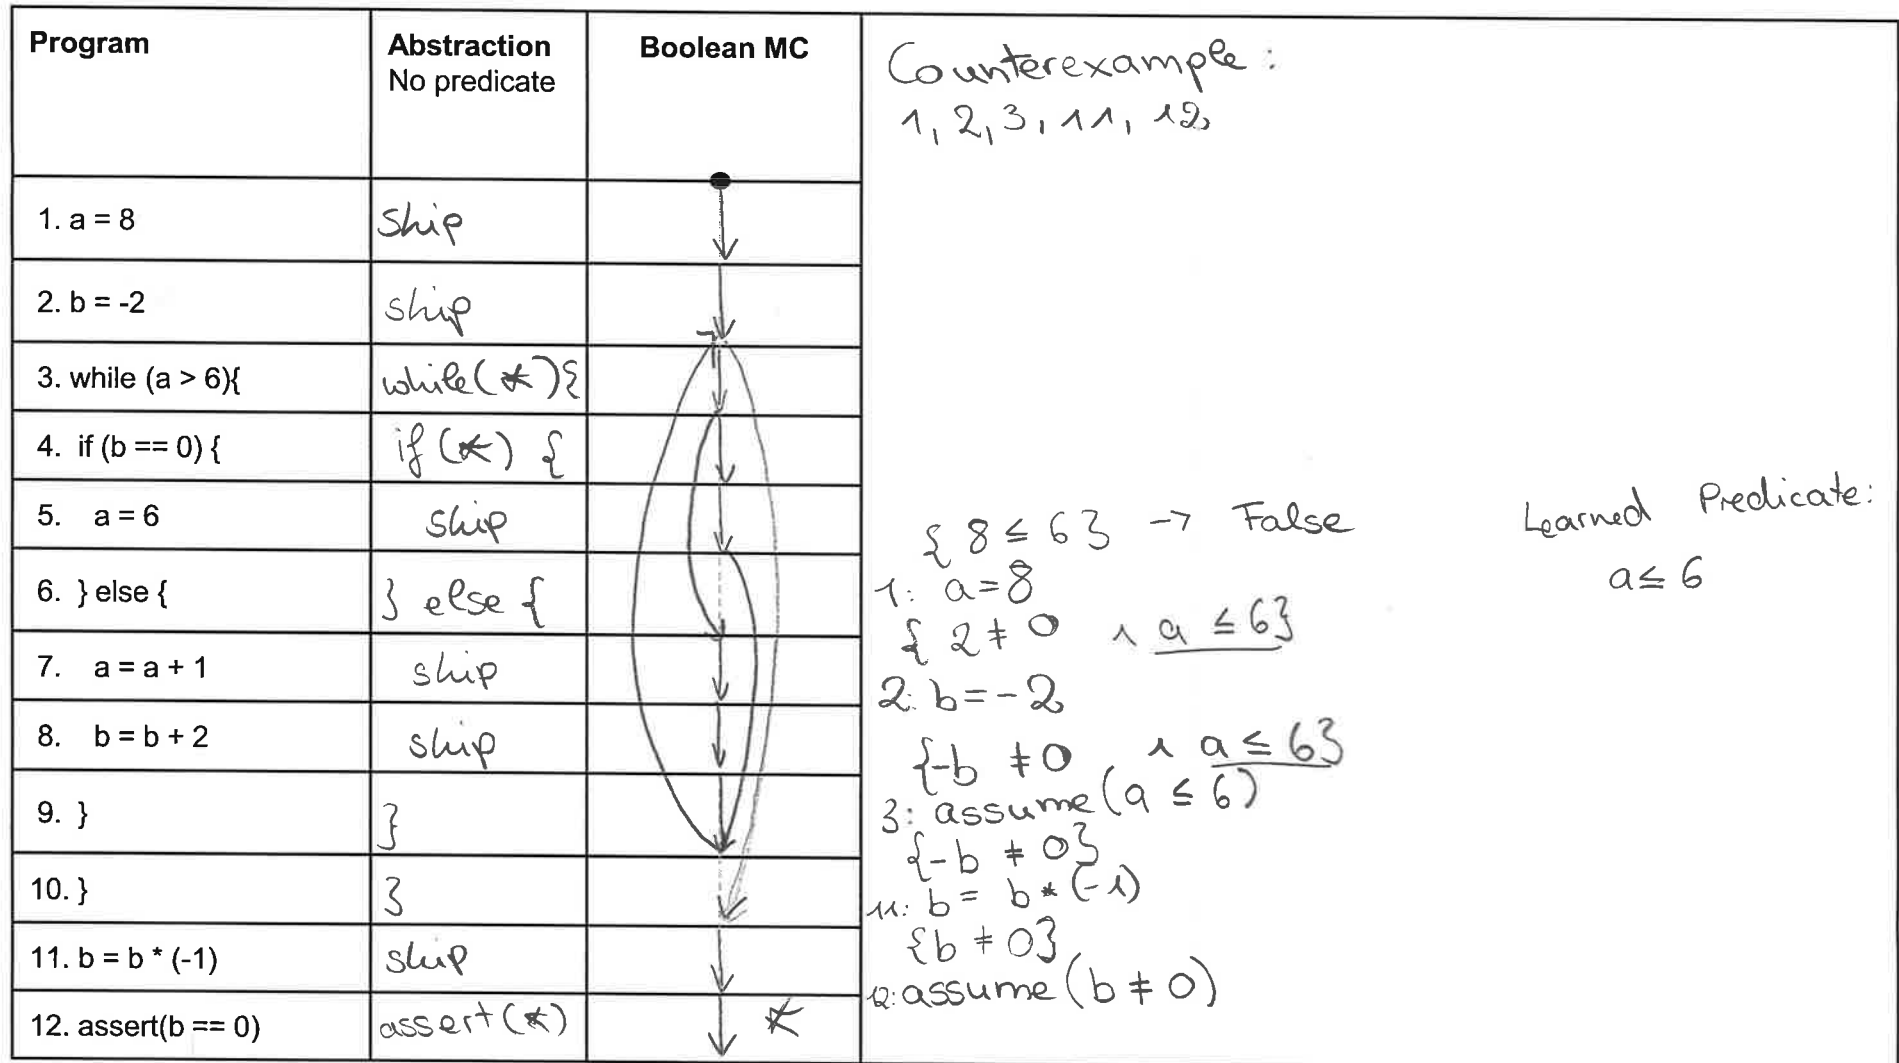 Program
Abstraction
No predicate
Boolean MC
Counterexample:
1, 2, 3, 11, 12,
1. a = 8
skip
2. b = -2
skip
3. while (a > 6){
while(*){
4. if (b == 0) {
if (*) {
5. a = 6
skip
6. } else {
} else {
7. a = a + 1
skip
8. b = b + 2
skip
9. }
}
10. }
}
11. b = b * (-1)
skip
12. assert(b == 0)
assert(*)
*
{ 8 ≤ 6 } → False
1: a=8
{ 2 ≠ 0 ∧ a ≤ 6}
2: b=-2
{-b ≠ 0 ∧ a ≤ 6}
3: assume(a ≤ 6)
{-b ≠ 0}
11: b = b * (-1)
{b ≠ 0}
12: assume(b ≠ 0)
Learned Predicate:
a ≤ 6